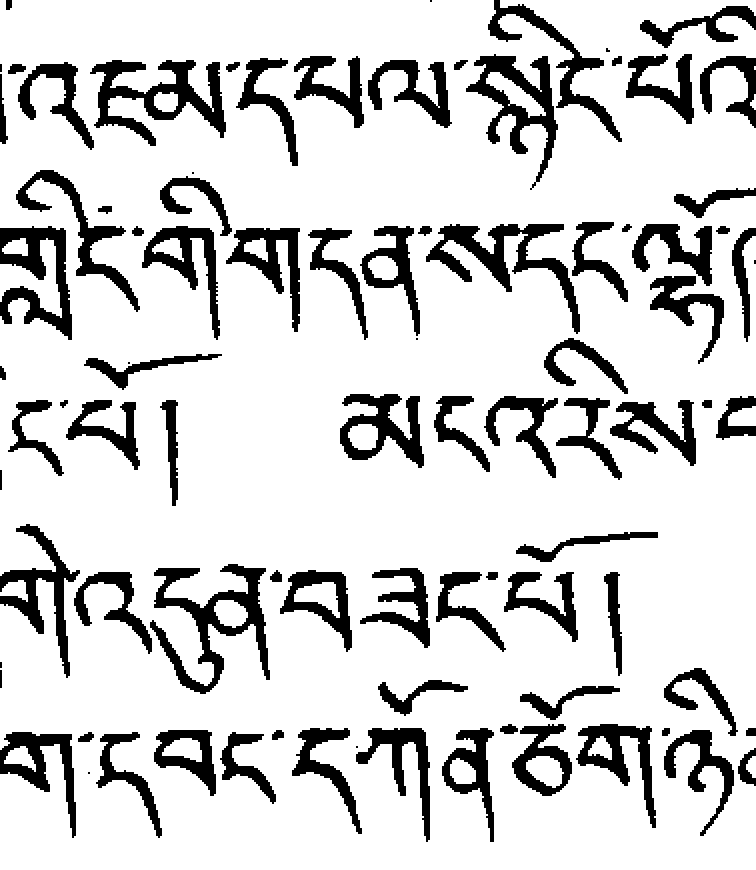 འཇམ་དཔལ་སྙིང་པོའི
གླིང་གི་གདན་ས་དང་ལྷོ
ང་པོ། མངའ་རིས་
གི་འདུན་བཟང་པོ།
ག་དབང་དཀོན་ཅོག་ཉི